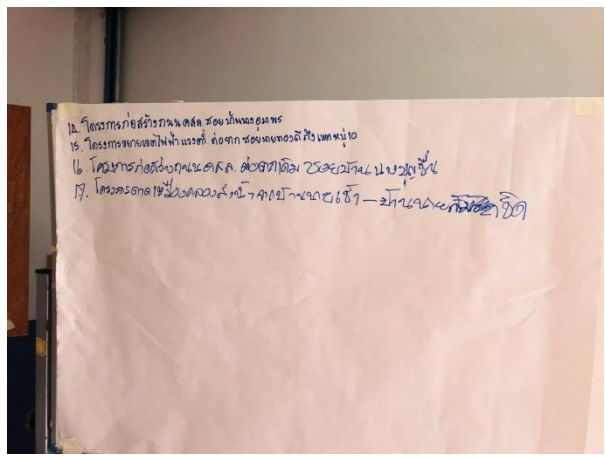 14. โครงการก่อสร้างถนน คสล. ซอยบ้านนางอุมาพร
15. โครงการขยายเขตไฟฟ้าแรงต่ำ ต่อจากซอยนายทองดีถึงเขตหมู่ 10
16. โครงการก่อสร้างถนน คสล. ต่อจากเดิม ซอยบ้าน บุญชื่น
17. โครงการดาดเหมืองคลองส่งน้ำ จากบ้านนายเช้า – บ้านนาย ชิด